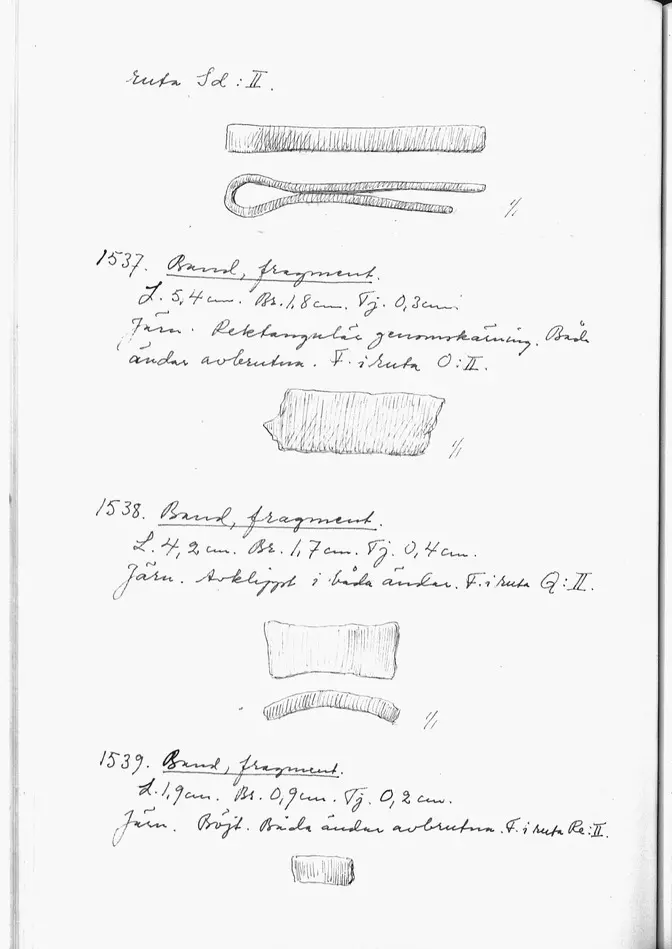 ruta Sd : II.
1/1
1537. Band, fragment.
L. 5,4 cm. Br. 1,8 cm. Tj. 0,3 cm.
Järn. Rektangulär genomskärning. Båda
ändar avbrutna. F. i ruta O : II.
1/1
1538. Band, fragment.
L. 4,2 cm. Br. 1,7 cm. Tj. 0,4 cm.
Järn. Avklippt i båda ändar. F. i ruta Q : II.
1/1
1539. Band, fragment.
L. 1,9 cm. Br. 0,9 cm. Tj. 0,2 cm.
Järn. Böjt. Båda ändar avbrutna. F. i ruta Re : II.